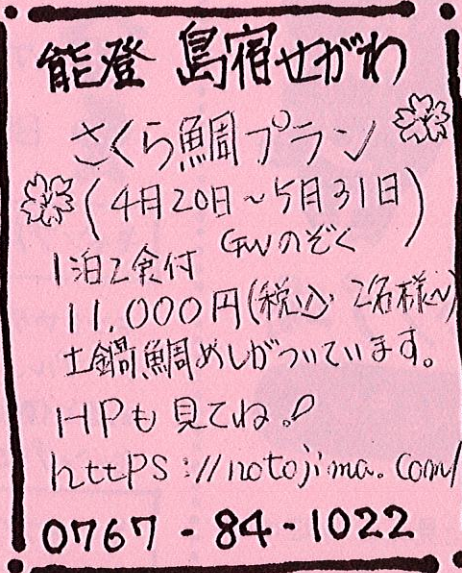 能登 島宿せがわ
さくら鯛プラン
(4月20日～5月31日)
GWのぞく
1泊2食付
11,000円(税込 2名様~)
土鍋鯛めしがついています。
HPも見てね♪
https://notojima.com/
0767-84-1022